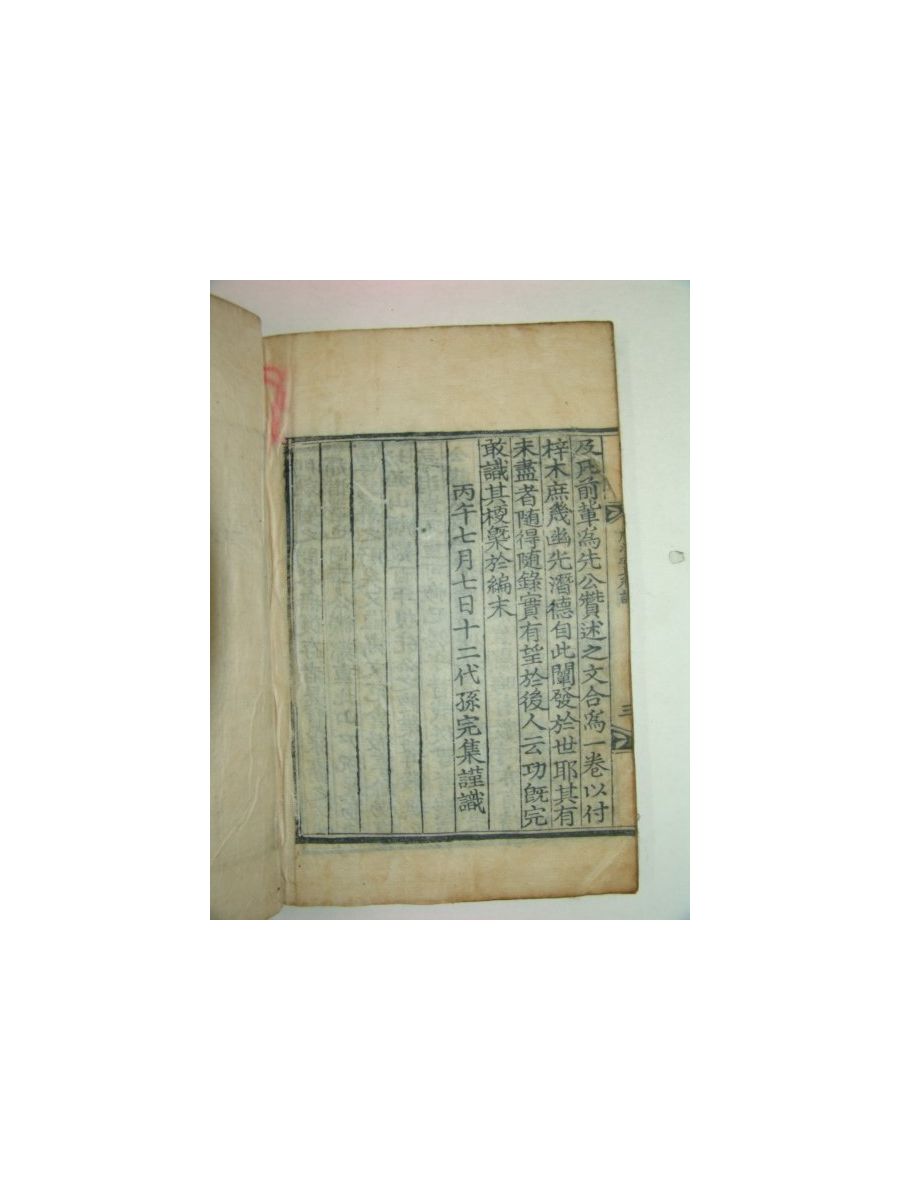 及凡前輩為先公贊述之文合寫一卷以付
梓木庶幾幽光潛德自此闡發於世耶其有
未盡者隨得隨錄實有望於後人云功旣完
敢識其梗槩於編末
丙午七月七日十二代孫完集謹識
三